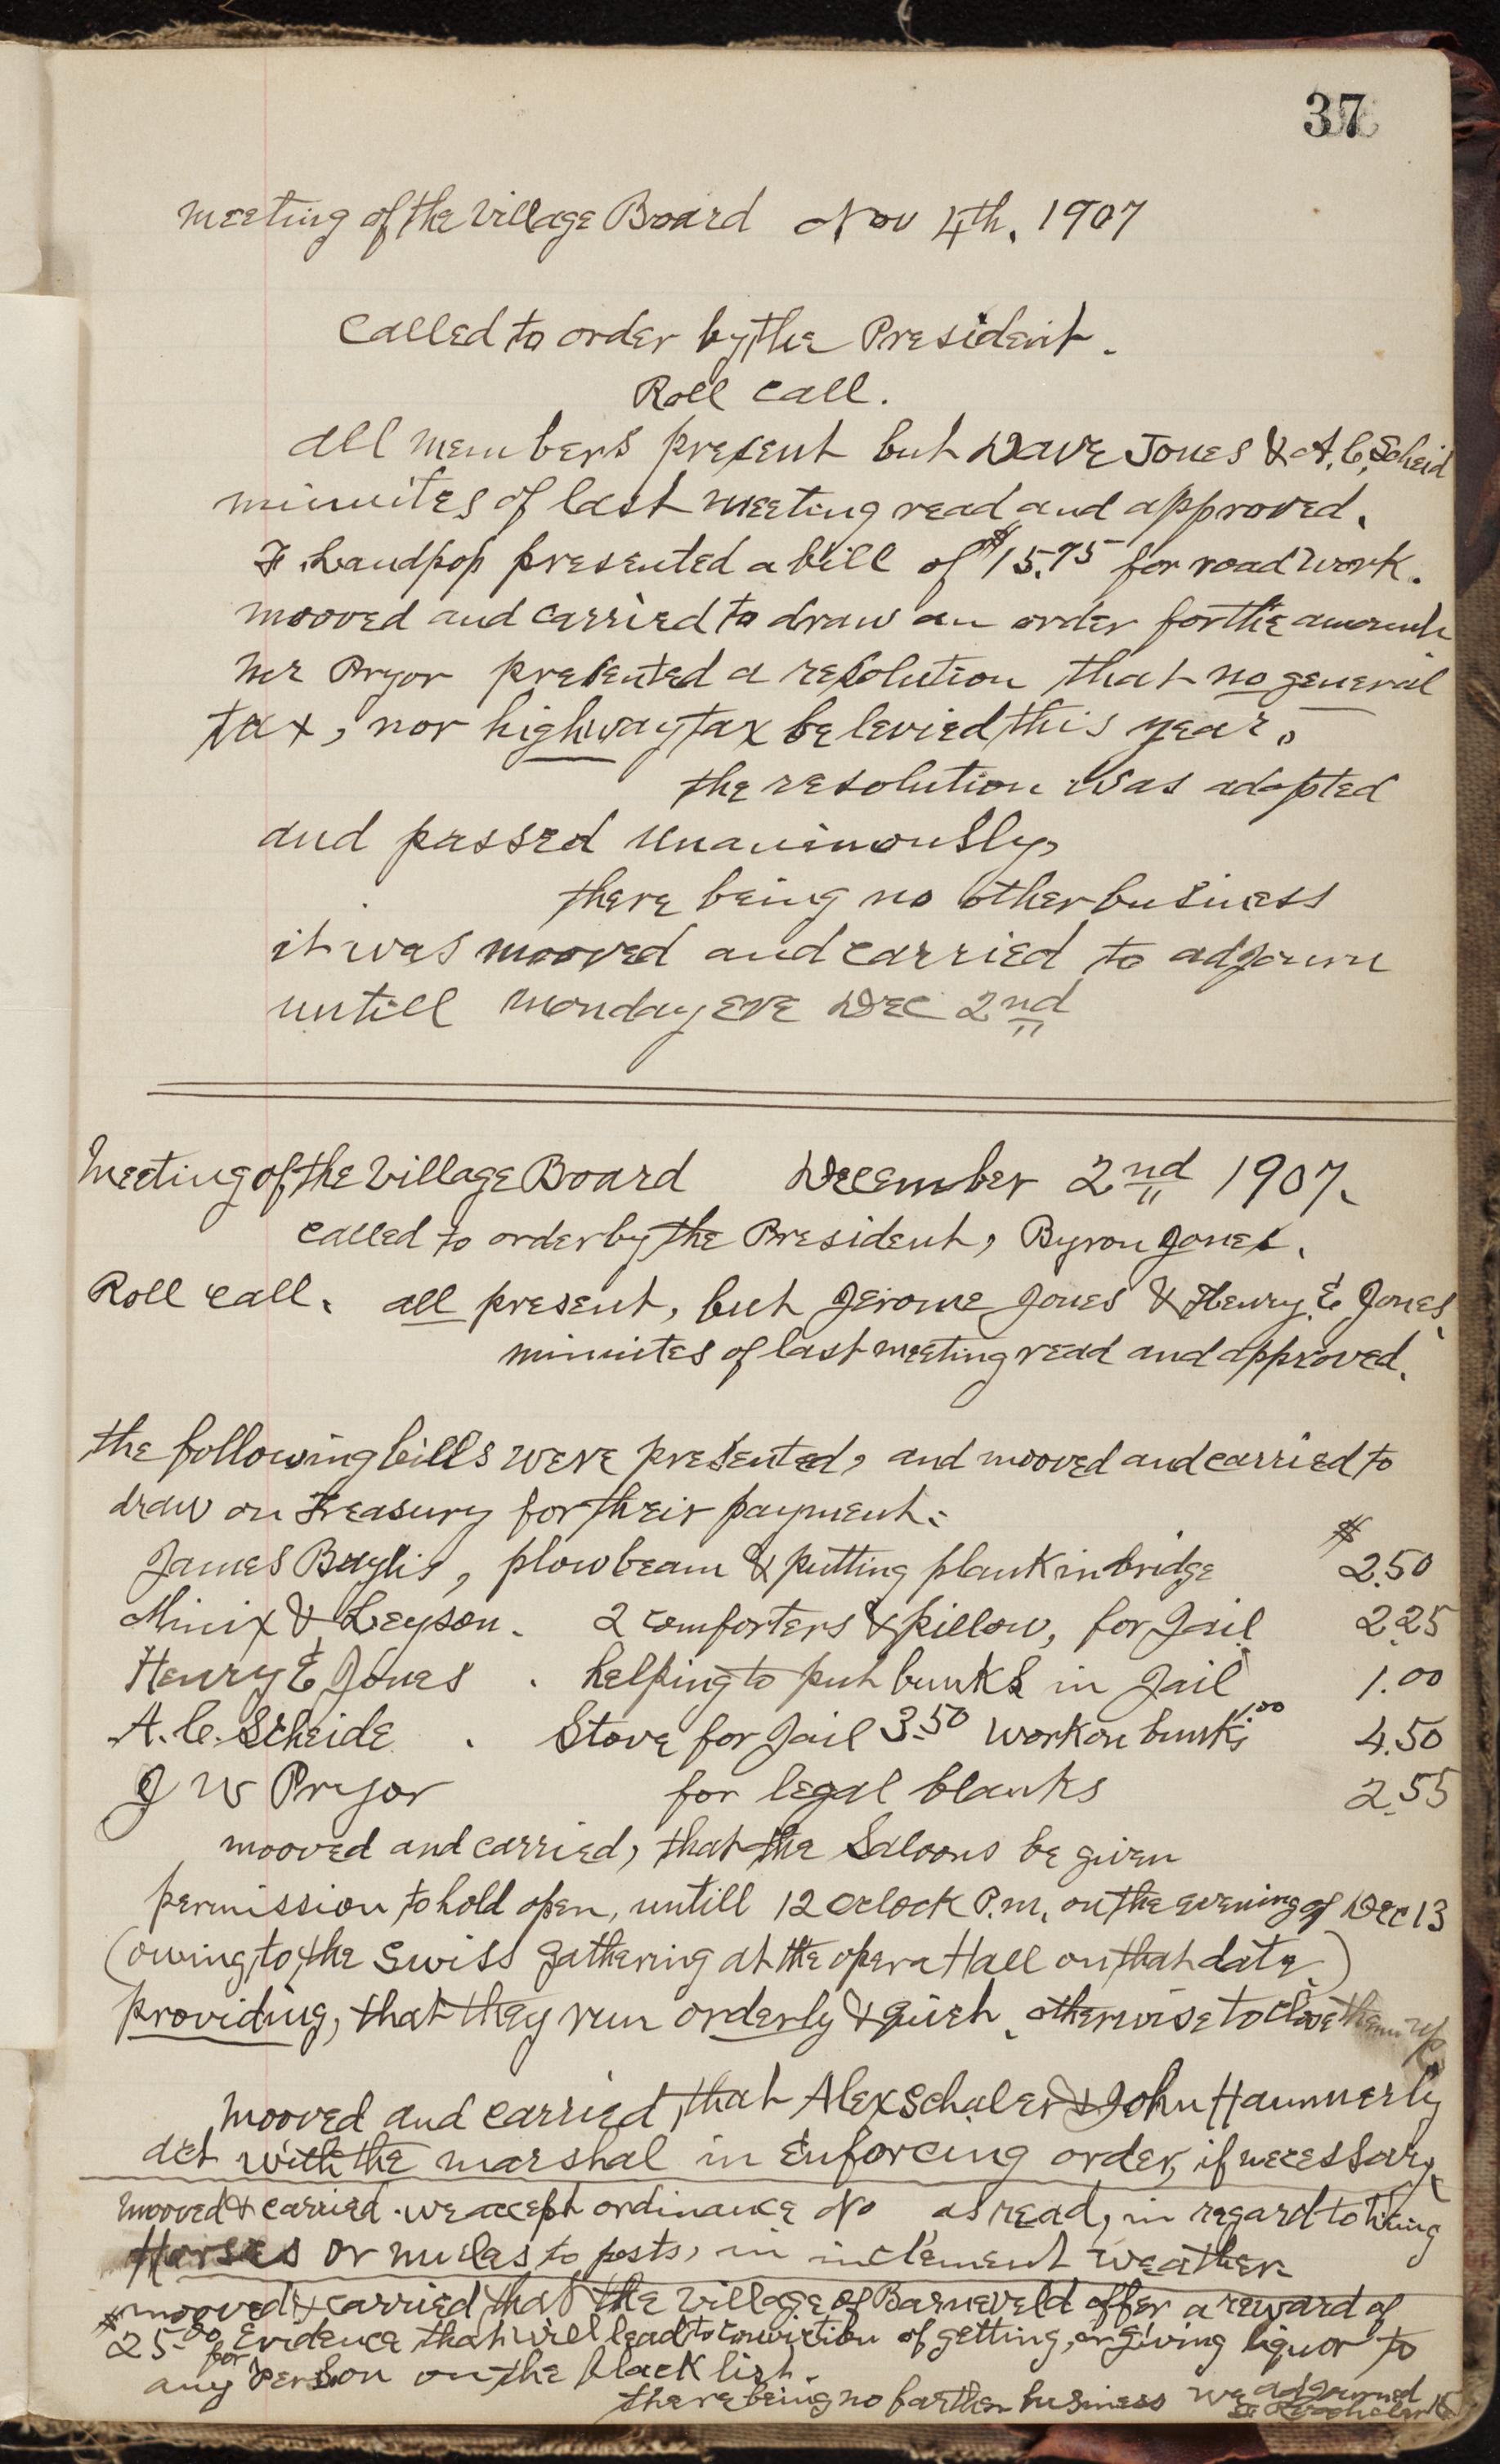 37
Meeting of the Village Board Nov 4th. 1907
Called to order by the President.
Roll Call.
all members present but Dave Jones & A. C. Scheid
minuites of last meeting read and approved.
F. Landpop presented a bill of $15.75 for road work.
mooved and carried to draw an order for the amount
Mr Pryor presented a resolution that no general
tax, nor highway tax be levied this year.
the resolution was adopted
and passed unanimously,
there being no other business
it was mooved and carried to adjourn
untill Monday eve Dec 2nd
Meeting of the Village Board December 2nd 1907.
Called to order by the President, Byron Jones.
Roll Call. all present, but Jerome Jones & Henry E Jones.
minuites of last meeting read and approved.
the following bills were presented, and mooved and carried to
draw on Treasury for their payment:
$
James Baylis, plow beam & putting plank in bridge 2.50
Minix & Leyson. 2 comforters & pillow, for Jail 2.25
Henry E Jones . helping to put bunks in Jail 1.00
A. C. Scheide . Stove for Jail 3.50 work on bunks 1.00 4.50
J W Pryor for legal blanks 2.55
mooved and carried, that the Saloons be given
permission to hold open, untill 12 oclock P.m. on the evening of Dec 13
(owing to the Swiss gathering at the opera Hall on that date.)
providing, that they run orderly & quiet. otherwise to close them up
Mooved and carried, that Alex Schaler & John Hammerly
act with the marshal in Enforcing order, if necessary.
mooved & carried. we accept ordinance No as read, in regard to tieing
Horses or mules to posts, in inclement weather
mooved & carried that the Village of Barneveld offer a reward of
$25.00 for Evidence that will lead to conviction of getting, or giving liquor to
any person on the black list.
there being no farther business we adjourned